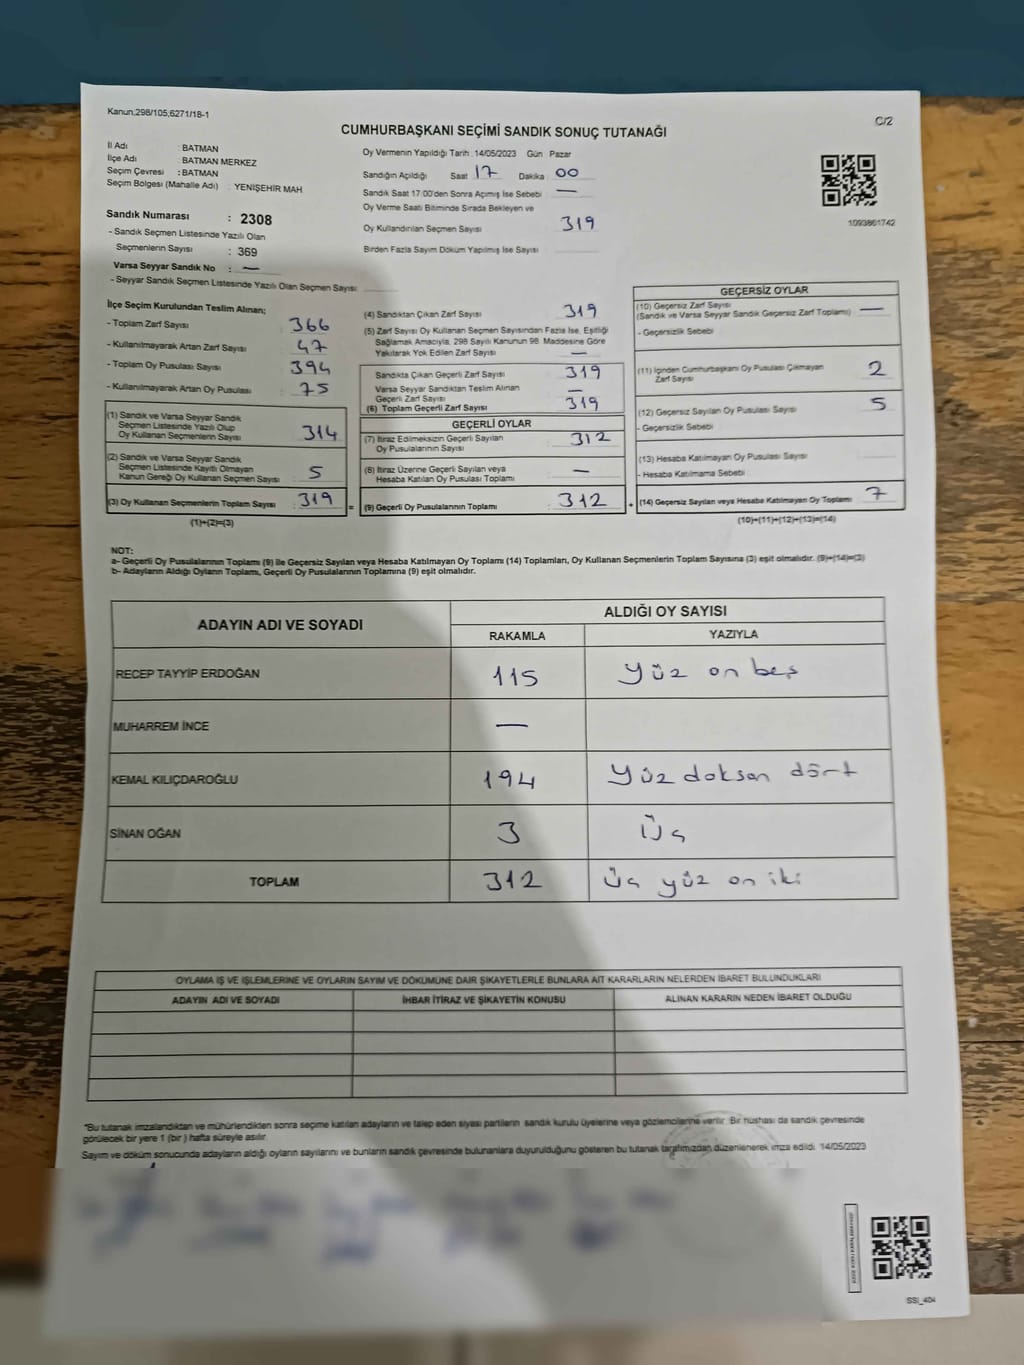 Kanun.298/105;6271/18-1
C/2
CUMHURBAŞKANI SEÇİMİ SANDIK SONUÇ TUTANAĞI
İl Adı : BATMAN
İlçe Adı : BATMAN MERKEZ
Seçim Çevresi : BATMAN
Seçim Bölgesi (Mahalle Adı) : YENİŞEHİR MAH
Sandık Numarası : 2308
- Sandık Seçmen Listesinde Yazılı Olan
Seçmenlerin Sayısı : 369
Varsa Seyyar Sandık No : —
- Seyyar Sandık Seçmen Listesinde Yazılı Olan Seçmen Sayısı:
Oy Vermenin Yapıldığı Tarih : 14/05/2023 Gün Pazar
Sandığın Açıldığı Saat 17 Dakika 00
Sandık Saat 17:00'den Sonra Açımış İse Sebebi —
Oy Verme Saati Bitiminde Sırada Bekleyen ve
Oy Kullandırılan Seçmen Sayısı 319
Birden Fazla Sayım Döküm Yapılmış İse Sayısı
1093861742
İlçe Seçim Kurulundan Teslim Alınan;
- Toplam Zarf Sayısı 366
- Kullanılmayarak Artan Zarf Sayısı 47
- Toplam Oy Pusulası Sayısı 394
- Kullanılmayarak Artan Oy Pusulası 75
(1) Sandık ve Varsa Seyyar Sandık
Seçmen Listesinde Yazılı Olup
Oy Kullanan Seçmenlerin Sayısı 314
(2) Sandık ve Varsa Seyyar Sandık
Seçmen Listesinde Kayıtlı Olmayan
Kanun Gereği Oy Kullanan Seçmen Sayısı 5
(3) Oy Kullanan Seçmenlerin Toplam Sayısı 319 =
(1)+(2)=(3)
(4) Sandıktan Çıkan Zarf Sayısı 319
(5) Zarf Sayısı Oy Kullanan Seçmen Sayısından Fazla İse, Eşitliği
Sağlamak Amacıyla, 298 Sayılı Kanunun 98. Maddesine Göre
Yakılarak Yok Edilen Zarf Sayısı —
Sandıkta Çıkan Geçerli Zarf Sayısı 319
Varsa Seyyar Sandıktan Teslim Alınan
Geçerli Zarf Sayısı —
(6) Toplam Geçerli Zarf Sayısı 319
GEÇERLİ OYLAR
(7) İtiraz Edilmeksizin Geçerli Sayılan
Oy Pusulalarının Sayısı 312
(8) İtiraz Üzerine Geçerli Sayılan veya
Hesaba Katılan Oy Pusulası Toplamı —
(9) Geçerli Oy Pusulalarının Toplamı 312 +
GEÇERSİZ OYLAR
(10) Geçersiz Zarf Sayısı
(Sandık ve Varsa Seyyar Sandık Geçersiz Zarf Toplamı) —
- Geçersizlik Sebebi
(11) İçinden Cumhurbaşkanı Oy Pusulası Çıkmayan
Zarf Sayısı 2
(12) Geçersiz Sayılan Oy Pusulası Sayısı 5
- Geçersizlik Sebebi
(13) Hesaba Katılmayan Oy Pusulası Sayısı
- Hesaba Katılmama Sebebi
(14) Geçersiz Sayılan veya Hesaba Katılmayan Oy Toplamı 7
(10)+(11)+(12)+(13)=(14)
NOT:
a- Geçerli Oy Pusulalarının Toplamı (9) ile Geçersiz Sayılan veya Hesaba Katılmayan Oy Toplamı (14) Toplamları, Oy Kullanan Seçmenlerin Toplam Sayısına (3) eşit olmalıdır. (9)+(14)=(3)
b- Adayların Aldığı Oyların Toplamı, Geçerli Oy Pusulalarının Toplamına (9) eşit olmalıdır.
ADAYIN ADI VE SOYADI
ALDIĞI OY SAYISI
RAKAMLA YAZIYLA
RECEP TAYYİP ERDOĞAN 115 Yüz on beş
MUHARREM İNCE —
KEMAL KILIÇDAROĞLU 194 Yüz doksan dört
SİNAN OĞAN 3 Üç
TOPLAM 312 Üç yüz on iki
OYLAMA İŞ VE İŞLEMLERİNE VE OYLARIN SAYIM VE DÖKÜMÜNE DAİR ŞİKAYETLERLE BUNLARA AİT KARARLARIN NELERDEN İBARET BULUNDUKLARI
ADAYIN ADI VE SOYADI İHBAR İTİRAZ VE ŞİKAYETİN KONUSU ALINAN KARARIN NEDEN İBARET OLDUĞU
*Bu tutanak imzalandıktan ve mühürlendikten sonra seçime katılan adayların ve talep eden siyasi partilerin sandık kurulu üyelerine veya gözlemcilerine verilir. Bir nüshası da sandık çevresinde
görülecek bir yere 1 (bir ) hafta süreyle asılır.
Sayım ve döküm sonucunda adayların aldığı oyların sayılarını ve bunların sandık çevresinde bulunanlara duyurulduğunu gösteren bu tutanak tarafımızdan düzenlenerek imza edildi. 14/05/2023
SSI_404